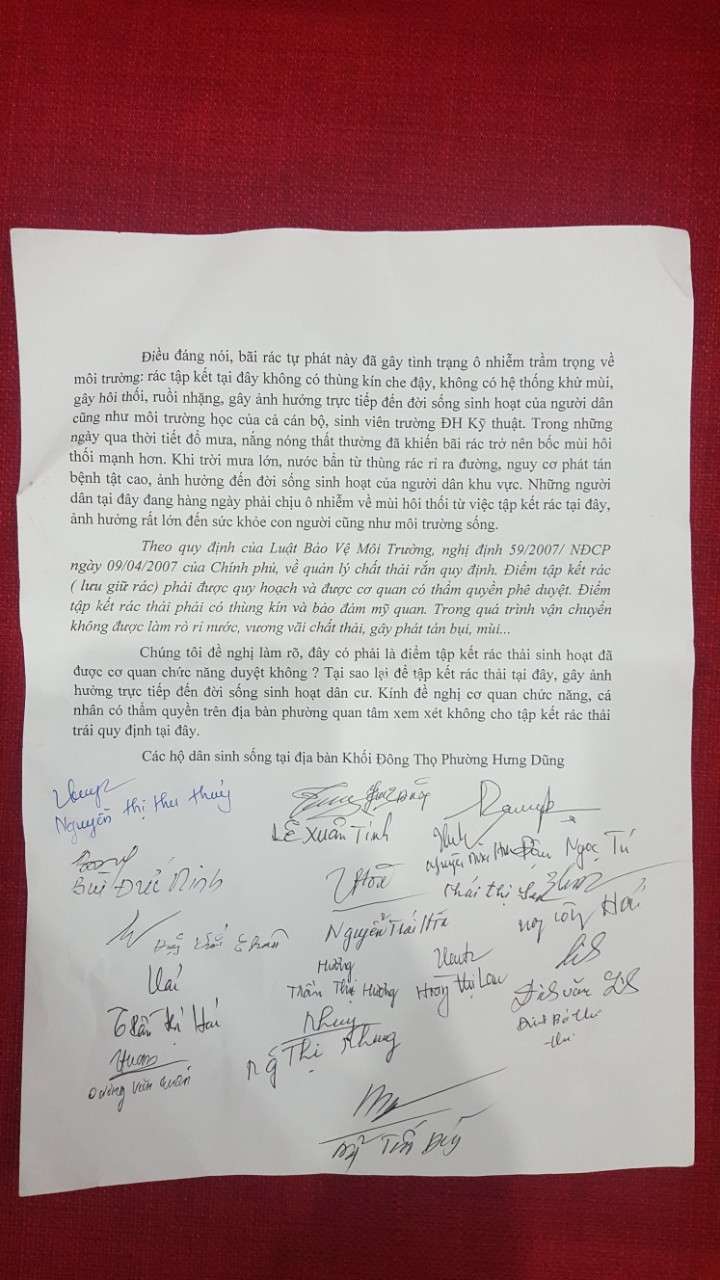 Điều đáng nói, bãi rác tự phát này đã gây tình trạng ô nhiễm trầm trọng về
môi trường: rác tập kết tại đây không có thùng kín che đậy, không có hệ thống khử mùi,
gây hôi thối, ruồi nhặng, gây ảnh hưởng trực tiếp đến đời sống sinh hoạt của người dân
cũng như môi trường học của cả cán bộ, sinh viên trường ĐH Kỹ thuật. Trong những
ngày qua thời tiết đổ mưa, nắng nóng thất thường đã khiến bãi rác trở nên bốc mùi hôi
thối mạnh hơn. Khi trời mưa lớn, nước bẩn từ thùng rác rỉ ra đường, nguy cơ phát tán
bệnh tật cao, ảnh hưởng đến đời sống sinh hoạt của người dân khu vực. Những người
dân tại đây đang hàng ngày phải chịu ô nhiễm về mùi hôi thối từ việc tập kết rác tại đây,
ảnh hưởng rất lớn đến sức khỏe con người cũng như môi trường sống.
Theo quy định của Luật Bảo Vệ Môi Trường, nghị định 59/2007/ NĐCP
ngày 09/04/2007 của Chính phủ, về quản lý chất thải rắn quy định. Điểm tập kết rác
( lưu giữ rác) phải được quy hoạch và được cơ quan có thẩm quyền phê duyệt. Điểm
tập kết rác thải phải có thùng kín và bảo đảm mỹ quan. Trong quá trình vận chuyển
không được làm rò rỉ nước, vương vãi chất thải, gây phát tán bụi, mùi...
Chúng tôi đề nghị làm rõ, đây có phải là điểm tập kết rác thải sinh hoạt đã
được cơ quan chức năng duyệt không ? Tại sao lại để tập kết rác thải tại đây, gây ảnh
hưởng trực tiếp đến đời sống sinh hoạt dân cư. Kính đề nghị cơ quan chức năng, cá
nhân có thẩm quyền trên địa bàn phường quan tâm xem xét không cho tập kết rác thải
trái quy định tại đây.
Các hộ dân sinh sống tại địa bàn Khối Đông Thọ Phường Hưng Dũng
Nguyễn thị thu thủy
Lê Xuân Tình
Ngọc Tú
Bùi Đức Ninh
Thái thị
Nguyễn Thái Hòa
Hải
Hương
Trần Thị Hương
Hoàng thị Lan
Hải
Trần thị Hải
Nhung
Ng Thị Nhung
Dương Văn Quán